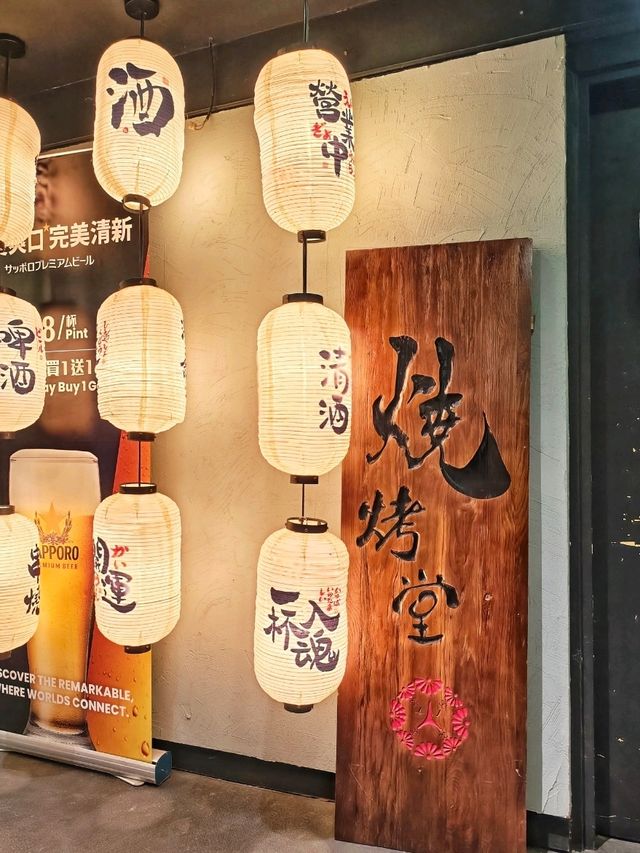 酒
営業中
清酒
一杯入魂
かい
開運
啤酒
串燒
爽口*完美清新
サッポロプレミアムビール
8/杯
Pint
買1送1
Buy 1 G
SAPPORO
MIUM BEER
SCOVER THE REMARKABLE,
HERE WORLDS CONNECT.
燒
烤
堂